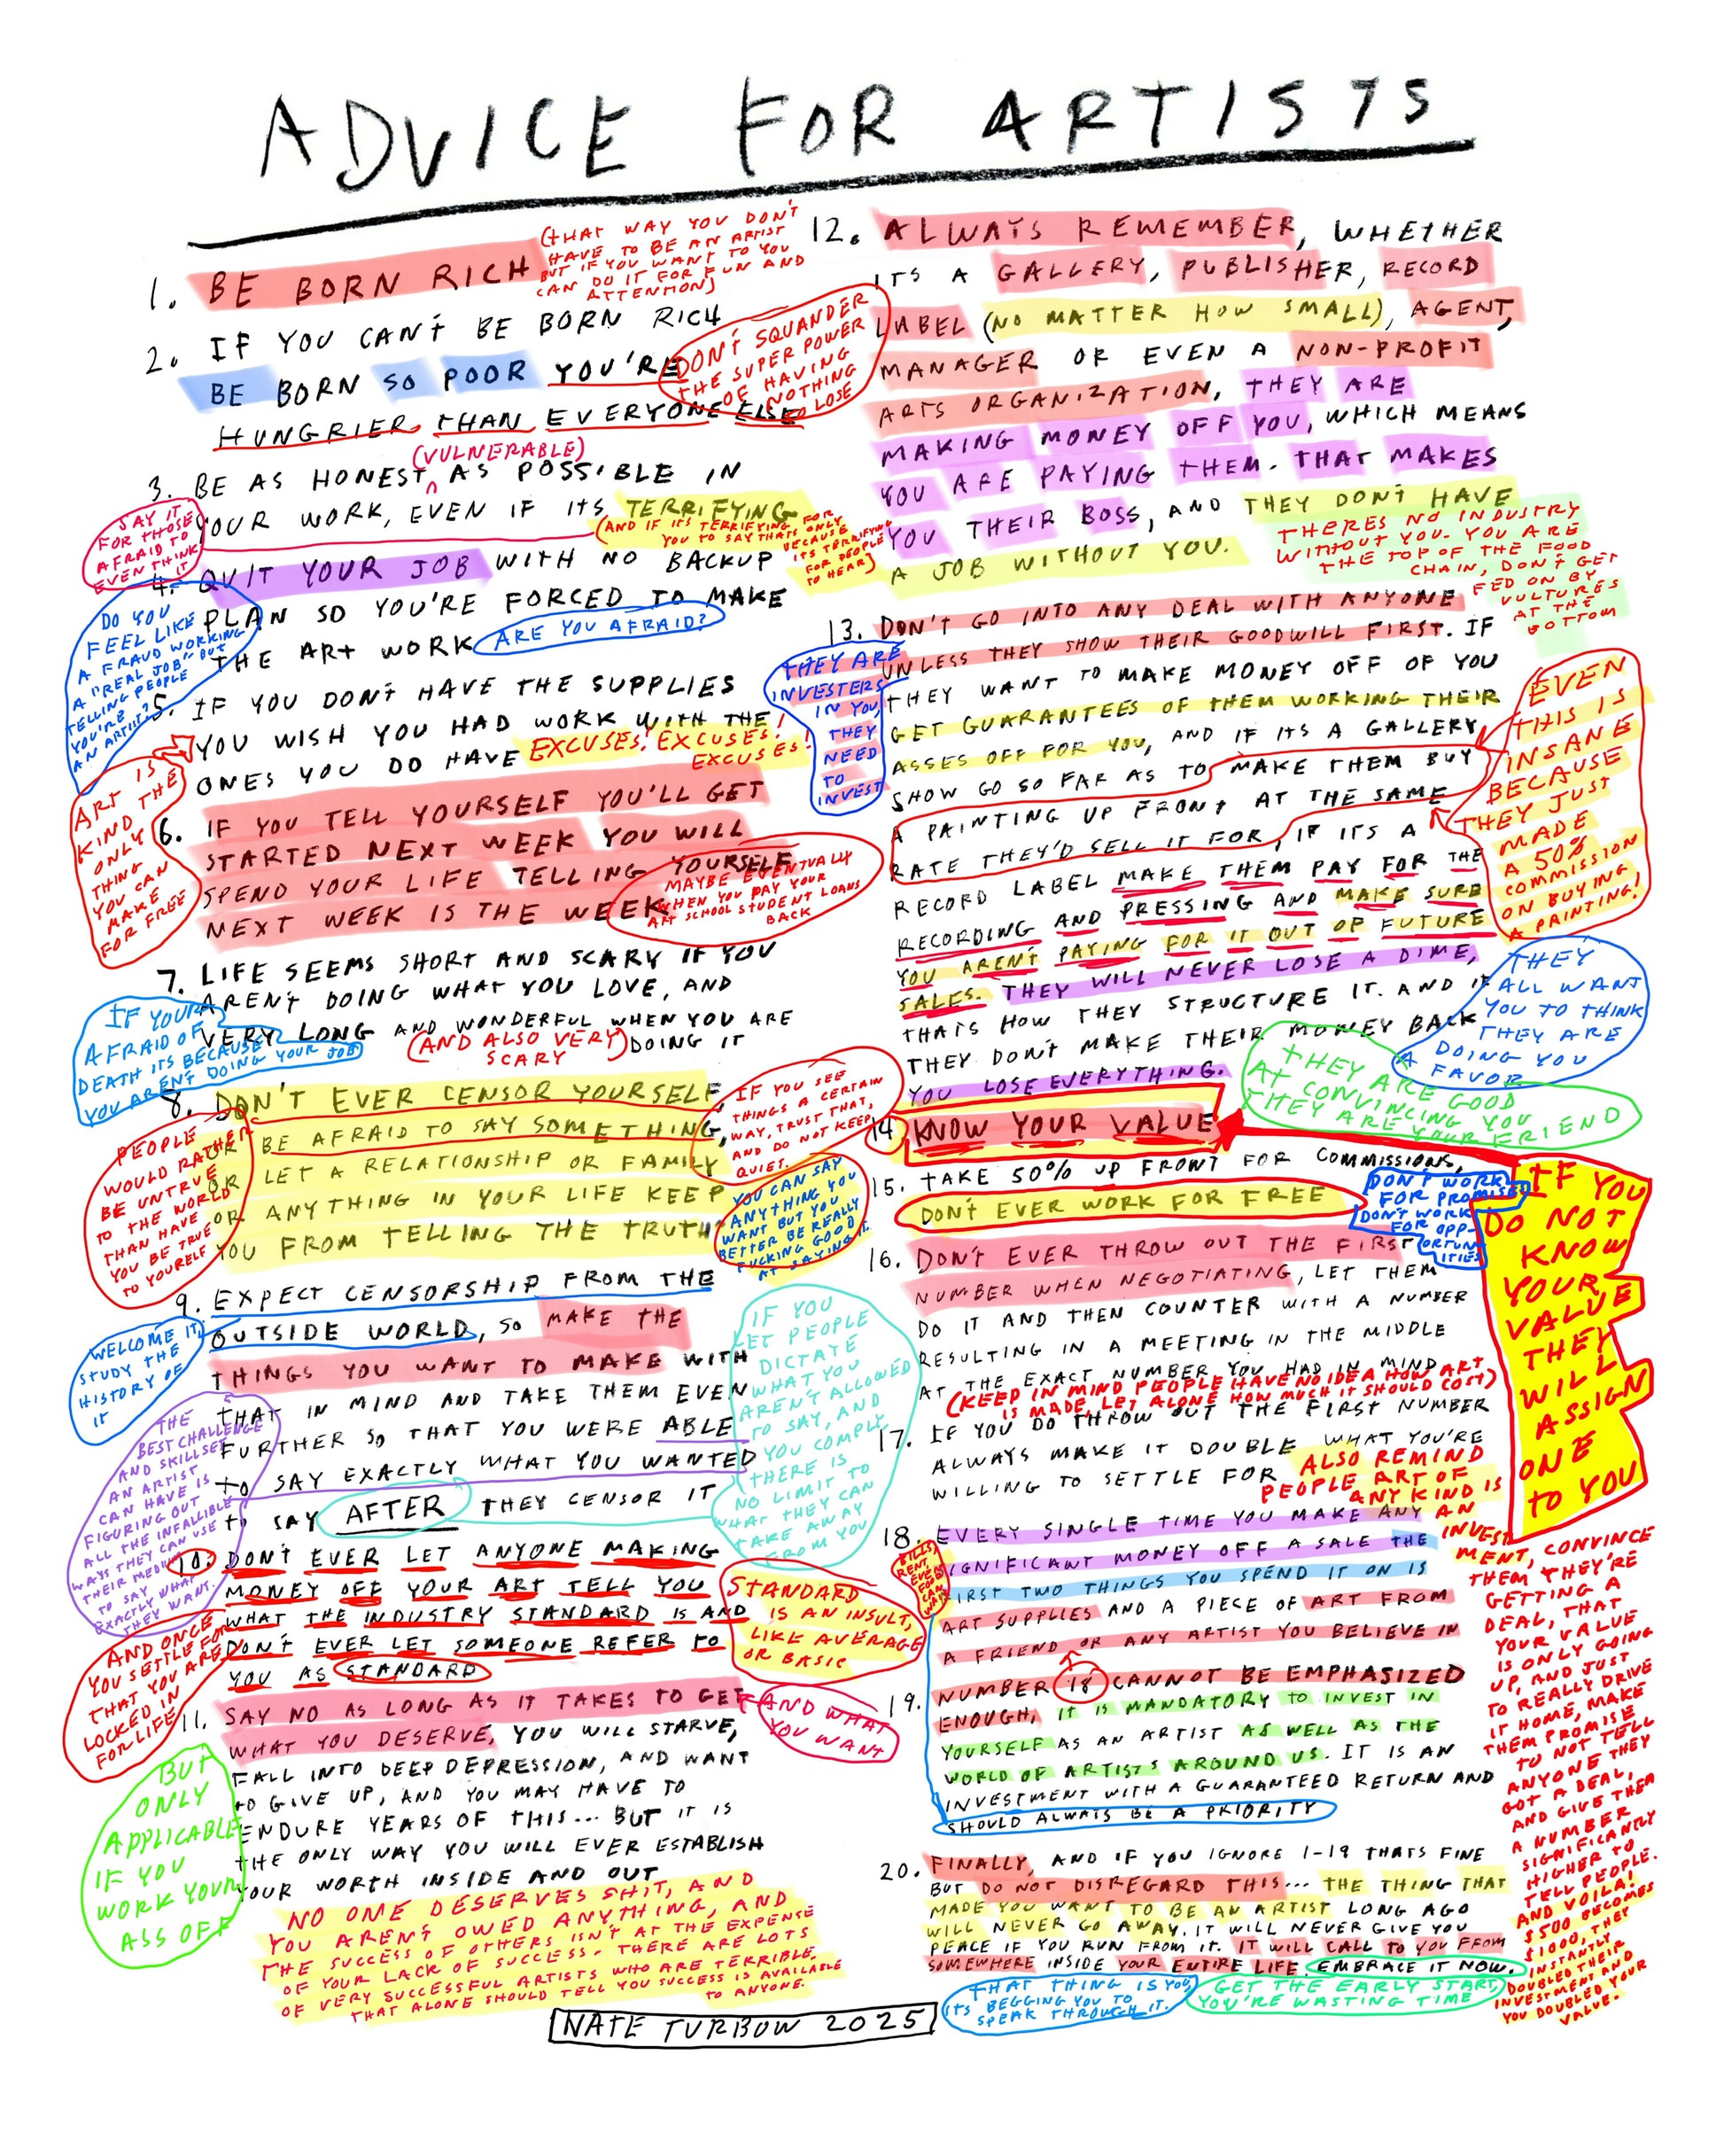 ADVICE FOR ARTISTS
1. BE BORN RICH
(THAT WAY YOU DON'T
HAVE TO BE AN ARTIST
BUT IF YOU WANT TO YOU
CAN DO IT FOR FUN AND
ATTENTION)
2. IF YOU CAN'T BE BORN RICH
BE BORN SO POOR YOU'RE
HUNGRIER THAN EVERYONE ELSE
DON'T SQUANDER
THE SUPER POWER
OF HAVING
NOTHING
TO LOSE
(VULNERABLE)
3. BE AS HONEST AS POSSIBLE IN
YOUR WORK, EVEN IF ITS TERRIFYING
(AND IF IT'S TERRIFYING FOR
YOU TO SAY THATS ONLY
BECAUSE
ITS TERRIFYING
FOR PEOPLE
TO HEAR)
SAY IT
FOR THOSE
AFRAID TO
EVEN THINK
IT
4. QUIT YOUR JOB WITH NO BACKUP
PLAN SO YOU'RE FORCED TO MAKE
THE ART WORK ARE YOU AFRAID?
DO YOU
FEEL LIKE
A FRAUD WORKING
A "REAL JOB" BUT
TELLING PEOPLE
YOU'RE
AN ARTIST?
5. IF YOU DON'T HAVE THE SUPPLIES
YOU WISH YOU HAD WORK WITH THE
ONES YOU DO HAVE EXCUSES! EXCUSES!
EXCUSES!
ART IS
KIND THE
ONLY
THING
YOU CAN
MAKE
FOR FREE
6. IF YOU TELL YOURSELF YOU'LL GET
STARTED NEXT WEEK YOU WILL
SPEND YOUR LIFE TELLING YOURSELF
NEXT WEEK IS THE WEEK
MAYBE EVENTUALLY
WHEN YOU PAY YOUR
ART SCHOOL STUDENT LOANS
BACK
7. LIFE SEEMS SHORT AND SCARY IF YOU
AREN'T DOING WHAT YOU LOVE, AND
VERY LONG AND WONDERFUL WHEN YOU ARE
(AND ALSO VERY
SCARY) DOING IT
IF YOUR
AFRAID OF
DEATH ITS BECAUSE
YOU AREN'T DOING YOUR JOB
8. DON'T EVER CENSOR YOURSELF,
OR BE AFRAID TO SAY SOMETHING,
OR LET A RELATIONSHIP OR FAMILY
OR ANYTHING IN YOUR LIFE KEEP
YOU FROM TELLING THE TRUTH
IF YOU SEE
THINGS A CERTAIN
WAY, TRUST THAT,
AND DO NOT KEEP
QUIET.
YOU CAN SAY
ANYTHING YOU
WANT BUT YOU
BETTER BE REALLY
FUCKING GOOD
AT SAYING IT.
PEOPLE
WOULD RATHER
BE UNTRUE
TO THE WORLD
THAN HAVE
YOU BE TRUE
TO YOURSELF
9. EXPECT CENSORSHIP FROM THE
OUTSIDE WORLD, SO MAKE THE
THINGS YOU WANT TO MAKE WITH
THAT IN MIND AND TAKE THEM EVEN
FURTHER SO THAT YOU WERE ABLE
TO SAY EXACTLY WHAT YOU WANTED
TO SAY AFTER THEY CENSOR IT
WELCOME IT,
STUDY THE
HISTORY OF
IT
THE
BEST CHALLENGE
AND SKILLSET
AN ARTIST
CAN HAVE IS
FIGURING OUT
ALL THE INFALLIBLE
WAYS THEY CAN USE
THEIR MEDIUM
TO SAY
EXACTLY WHAT
THEY WANT.
IF YOU
LET PEOPLE
DICTATE
WHAT YOU
AREN'T ALLOWED
TO SAY, AND
YOU COMPLY
THERE IS
NO LIMIT TO
WHAT THEY CAN
TAKE AWAY
FROM YOU
10. DON'T EVER LET ANYONE MAKING
MONEY OFF YOUR ART TELL YOU
WHAT THE INDUSTRY STANDARD IS AND
DON'T EVER LET SOMEONE REFER TO
YOU AS STANDARD
STANDARD
IS AN INSULT,
LIKE AVERAGE
OR BASIC
AND ONCE
YOU SETTLE FOR
THAT YOU ARE
LOCKED IN
FOR LIFE
11. SAY NO AS LONG AS IT TAKES TO GET
WHAT YOU DESERVE, YOU WILL STARVE,
FALL INTO DEEP DEPRESSION, AND WANT
TO GIVE UP, AND YOU MAY HAVE TO
ENDURE YEARS OF THIS... BUT IT IS
THE ONLY WAY YOU WILL EVER ESTABLISH
YOUR WORTH INSIDE AND OUT
AND WHAT
YOU WANT
BUT
ONLY
APPLICABLE
IF YOU
WORK YOUR
ASS OFF
NO ONE DESERVES SHIT, AND
YOU AREN'T OWED ANYTHING, AND
THE SUCCESS OF OTHERS ISN'T AT THE EXPENSE
OF YOUR LACK OF SUCCESS. THERE ARE LOTS
OF VERY SUCCESSFUL ARTISTS WHO ARE TERRIBLE.
THAT ALONE SHOULD TELL YOU SUCCESS IS AVAILABLE
TO ANYONE.
12. ALWAYS REMEMBER, WHETHER
ITS A GALLERY, PUBLISHER, RECORD
LABEL (NO MATTER HOW SMALL), AGENT,
MANAGER OR EVEN A NON-PROFIT
ARTS ORGANIZATION, THEY ARE
MAKING MONEY OFF YOU, WHICH MEANS
YOU ARE PAYING THEM. THAT MAKES
YOU THEIR BOSS, AND THEY DON'T HAVE
A JOB WITHOUT YOU.
THERES NO INDUSTRY
WITHOUT YOU. YOU ARE
THE TOP OF THE FOOD
CHAIN, DON'T GET
FED ON BY
VULTURES
AT THE
BOTTOM
13. DON'T GO INTO ANY DEAL WITH ANYONE
UNLESS THEY SHOW THEIR GOODWILL FIRST. IF
THEY WANT TO MAKE MONEY OFF OF YOU
GET GUARANTEES OF THEM WORKING THEIR
ASSES OFF FOR YOU, AND IF ITS A GALLERY
SHOW GO SO FAR AS TO MAKE THEM BUY
A PAINTING UP FRONT AT THE SAME
RATE THEY'D SELL IT FOR, IF ITS A
RECORD LABEL MAKE THEM PAY FOR THE
RECORDING AND PRESSING AND MAKE SURE
YOU AREN'T PAYING FOR IT OUT OF FUTURE
SALES. THEY WILL NEVER LOSE A DIME,
THATS HOW THEY STRUCTURE IT. AND IF
THEY DON'T MAKE THEIR MONEY BACK
YOU LOSE EVERYTHING.
THEY ARE
INVESTERS
IN YOU,
THEY
NEED
TO
INVEST
EVEN
THIS IS
INSANE
BECAUSE
THEY JUST
MADE
A 50%
COMMISSION
ON BUYING
A PAINTING!
THEY
ALL WANT
YOU TO THINK
THEY ARE
DOING YOU
A FAVOR
THEY ARE GOOD
AT CONVINCING YOU
THEY ARE YOUR FRIEND
14 KNOW YOUR VALUE
IF YOU
DO NOT
KNOW
YOUR
VALUE
THEY
WILL
ASSIGN
ONE
TO YOU
15. TAKE 50% UP FRONT FOR COMMISSIONS,
DON'T EVER WORK FOR FREE
DON'T WORK
FOR PROMISES
DON'T WORK
FOR OPP-
ORTUN-
ITIES
16. DON'T EVER THROW OUT THE FIRST
NUMBER WHEN NEGOTIATING, LET THEM
DO IT AND THEN COUNTER WITH A NUMBER
RESULTING IN A MEETING IN THE MIDDLE
AT THE EXACT NUMBER YOU HAD IN MIND
(KEEP IN MIND PEOPLE HAVE NO IDEA HOW ART
IS MADE, LET ALONE HOW MUCH IT SHOULD COST)
17. IF YOU DO THROW OUT THE FIRST NUMBER
ALWAYS MAKE IT DOUBLE WHAT YOU'RE
WILLING TO SETTLE FOR
ALSO REMIND
PEOPLE ART OF
ANY KIND IS
AN
INVEST
MENT, CONVINCE
THEM THEY'RE
GETTING A
DEAL, THAT
YOUR VALUE
IS ONLY GOING
UP, AND JUST
TO REALLY DRIVE
IT HOME, MAKE
THEM PROMISE
TO NOT TELL
ANYONE THEY
GOT A DEAL,
AND GIVE THEM
A NUMBER
SIGNIFICANTLY
HIGHER TO
TELL PEOPLE.
AND VOILA!
$500 BECOMES
$1000, THEY
INSTANTLY
DOUBLED THEIR
INVESTMENT AND
YOU DOUBLED YOUR
VALUE.
18. EVERY SINGLE TIME YOU MAKE ANY
SIGNIFICANT MONEY OFF A SALE THE
FIRST TWO THINGS YOU SPEND IT ON IS
ART SUPPLIES AND A PIECE OF ART FROM
A FRIEND OR ANY ARTIST YOU BELIEVE IN
BILLS,
RENT,
EVEN
FOOD
CAN
WAIT
19. NUMBER 18 CANNOT BE EMPHASIZED
ENOUGH, IT IS MANDATORY TO INVEST IN
YOURSELF AS AN ARTIST AS WELL AS THE
WORLD OF ARTISTS AROUND US. IT IS AN
INVESTMENT WITH A GUARANTEED RETURN AND
SHOULD ALWAYS BE A PRIORITY
20. FINALLY, AND IF YOU IGNORE 1-19 THATS FINE
BUT DO NOT DISREGARD THIS... THE THING THAT
MADE YOU WANT TO BE AN ARTIST LONG AGO
WILL NEVER GO AWAY. IT WILL NEVER GIVE YOU
PEACE IF YOU RUN FROM IT. IT WILL CALL TO YOU FROM
SOMEWHERE INSIDE YOUR ENTIRE LIFE. EMBRACE IT NOW.
THAT THING IS YOU,
ITS BEGGING YOU TO
SPEAK THROUGH IT.
GET THE EARLY START,
YOU'RE WASTING TIME
NATE TURBOW 2025